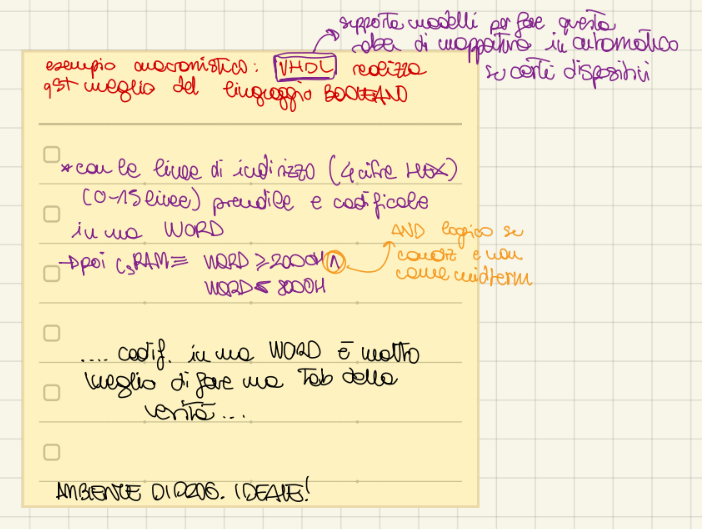 supporta modelli per fare questa
idea di mappatura in automatico
su certi dispositivi
esempio anacronistico: VHDL realizza
qst meglio del linguaggio BOOLEANO
*con le linee di indirizzo (4 cifre HEX)
(0-15 linee) prendile e codificale
in una WORD
→ poi CSRAM ≡ WORD ≥ 2000H ∧
WORD < 8000H
AND logico su
condiz e non
come midterm
.... codif. in una WORD è molto
meglio di fare una Tab della
verità...
AMBIENTE DI PROG. IDEALE!